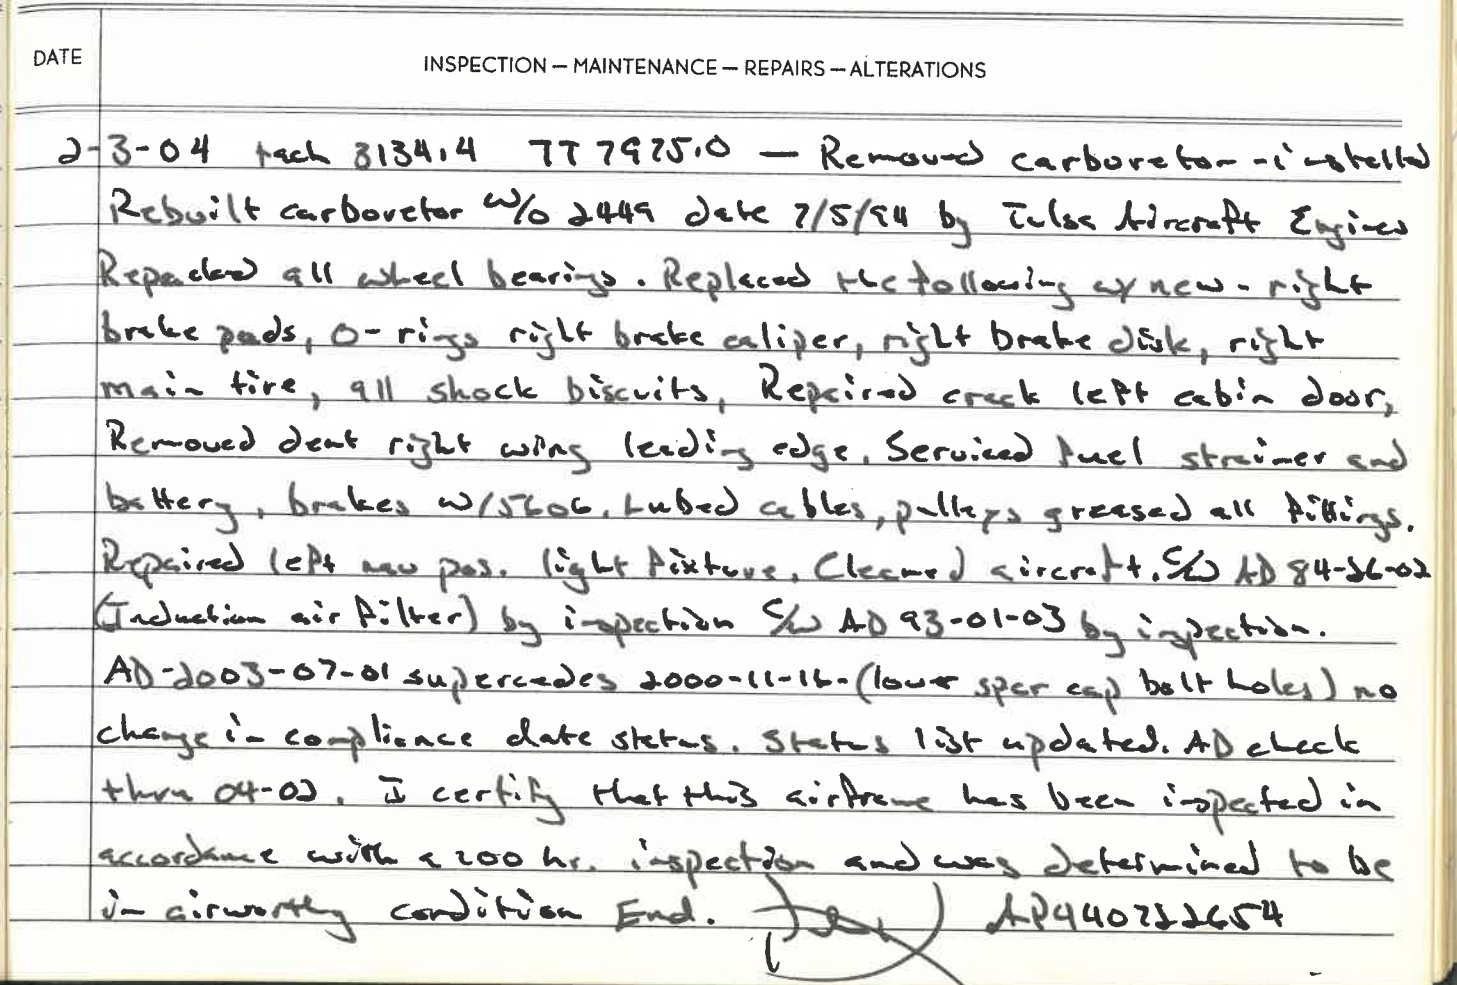 DATE
INSPECTION — MAINTENANCE — REPAIRS — ALTERATIONS
2-3-04 tach 3134.4 TT 7975.0 — Removed carburetor - installed
Rebuilt carburetor W/O 2449 date 7/5/94 by Tulsa Aircraft Engines
Repacked all wheel bearings. Replaced the following w/ new - right
brake pads, O-rings right brake caliper, right brake disk, right
main tire, all shock biscuits, Repaired crack left cabin door,
Removed dent right wing leading edge. Serviced fuel strainer and
battery, brakes w/5606. Lubed cables, pulleys greased all fittings.
Repaired left nav pos. light fixture. Cleaned aircraft. C/W AD 84-26-02
(Induction air filter) by inspection C/W AD 93-01-03 by inspection.
AD-2003-07-01 supercedes 2000-11-16 - (lower spar cap bolt holes) no
change in compliance date status. Status list updated. AD check
thru 04-02. I certify that this airframe has been inspected in
accordance with a 200 hr. inspection and was determined to be
in airworthy condition End. AP440722654